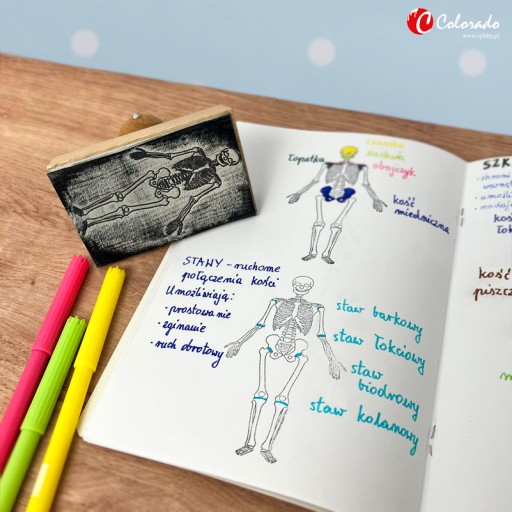 Colorado
www.sylaby.pl
czaszka
żuchwa
łopatka
obojczyk
kość
miedniczna
STAWY - ruchome
połączenia kości
Umożliwiają:
· prostowanie
· zginanie
· ruch obrotowy
staw barkowy
staw łokciowy
staw
biodrowy
staw kolanowy
SZK
kość
piszcz